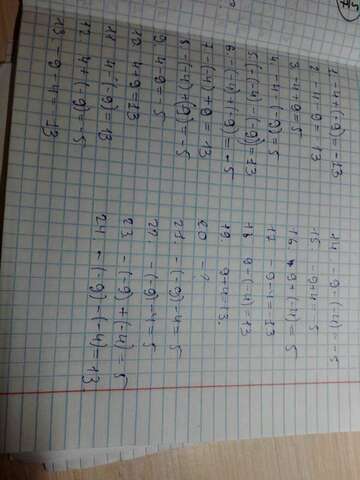 1. -4+(-9)=-13
2 -4-9=13
3 -4+9=5
4 -4-(-9)=5
5 (-(-4)-(-9))=13
6 -(-4)+(-9)=-5
7 -(-4)+9=13
8 -(-4)(9)=-5
9 4-9=-5
10 4+9=13
11 4-(-9)=13
12 4+(-9)=-5
13. -9-4=-13
14 -9-(-4)=-5
15 -9+4=-5
16 9+(-4)=5
17 -9-4=13
18 9-(-4)=13
19. 9+4=13.
20 - ?
21. -(-9)-4=5
22. -(-9)-4=5
23 -(-9)+(-4)=5
24. -(-9)-(-4)=13